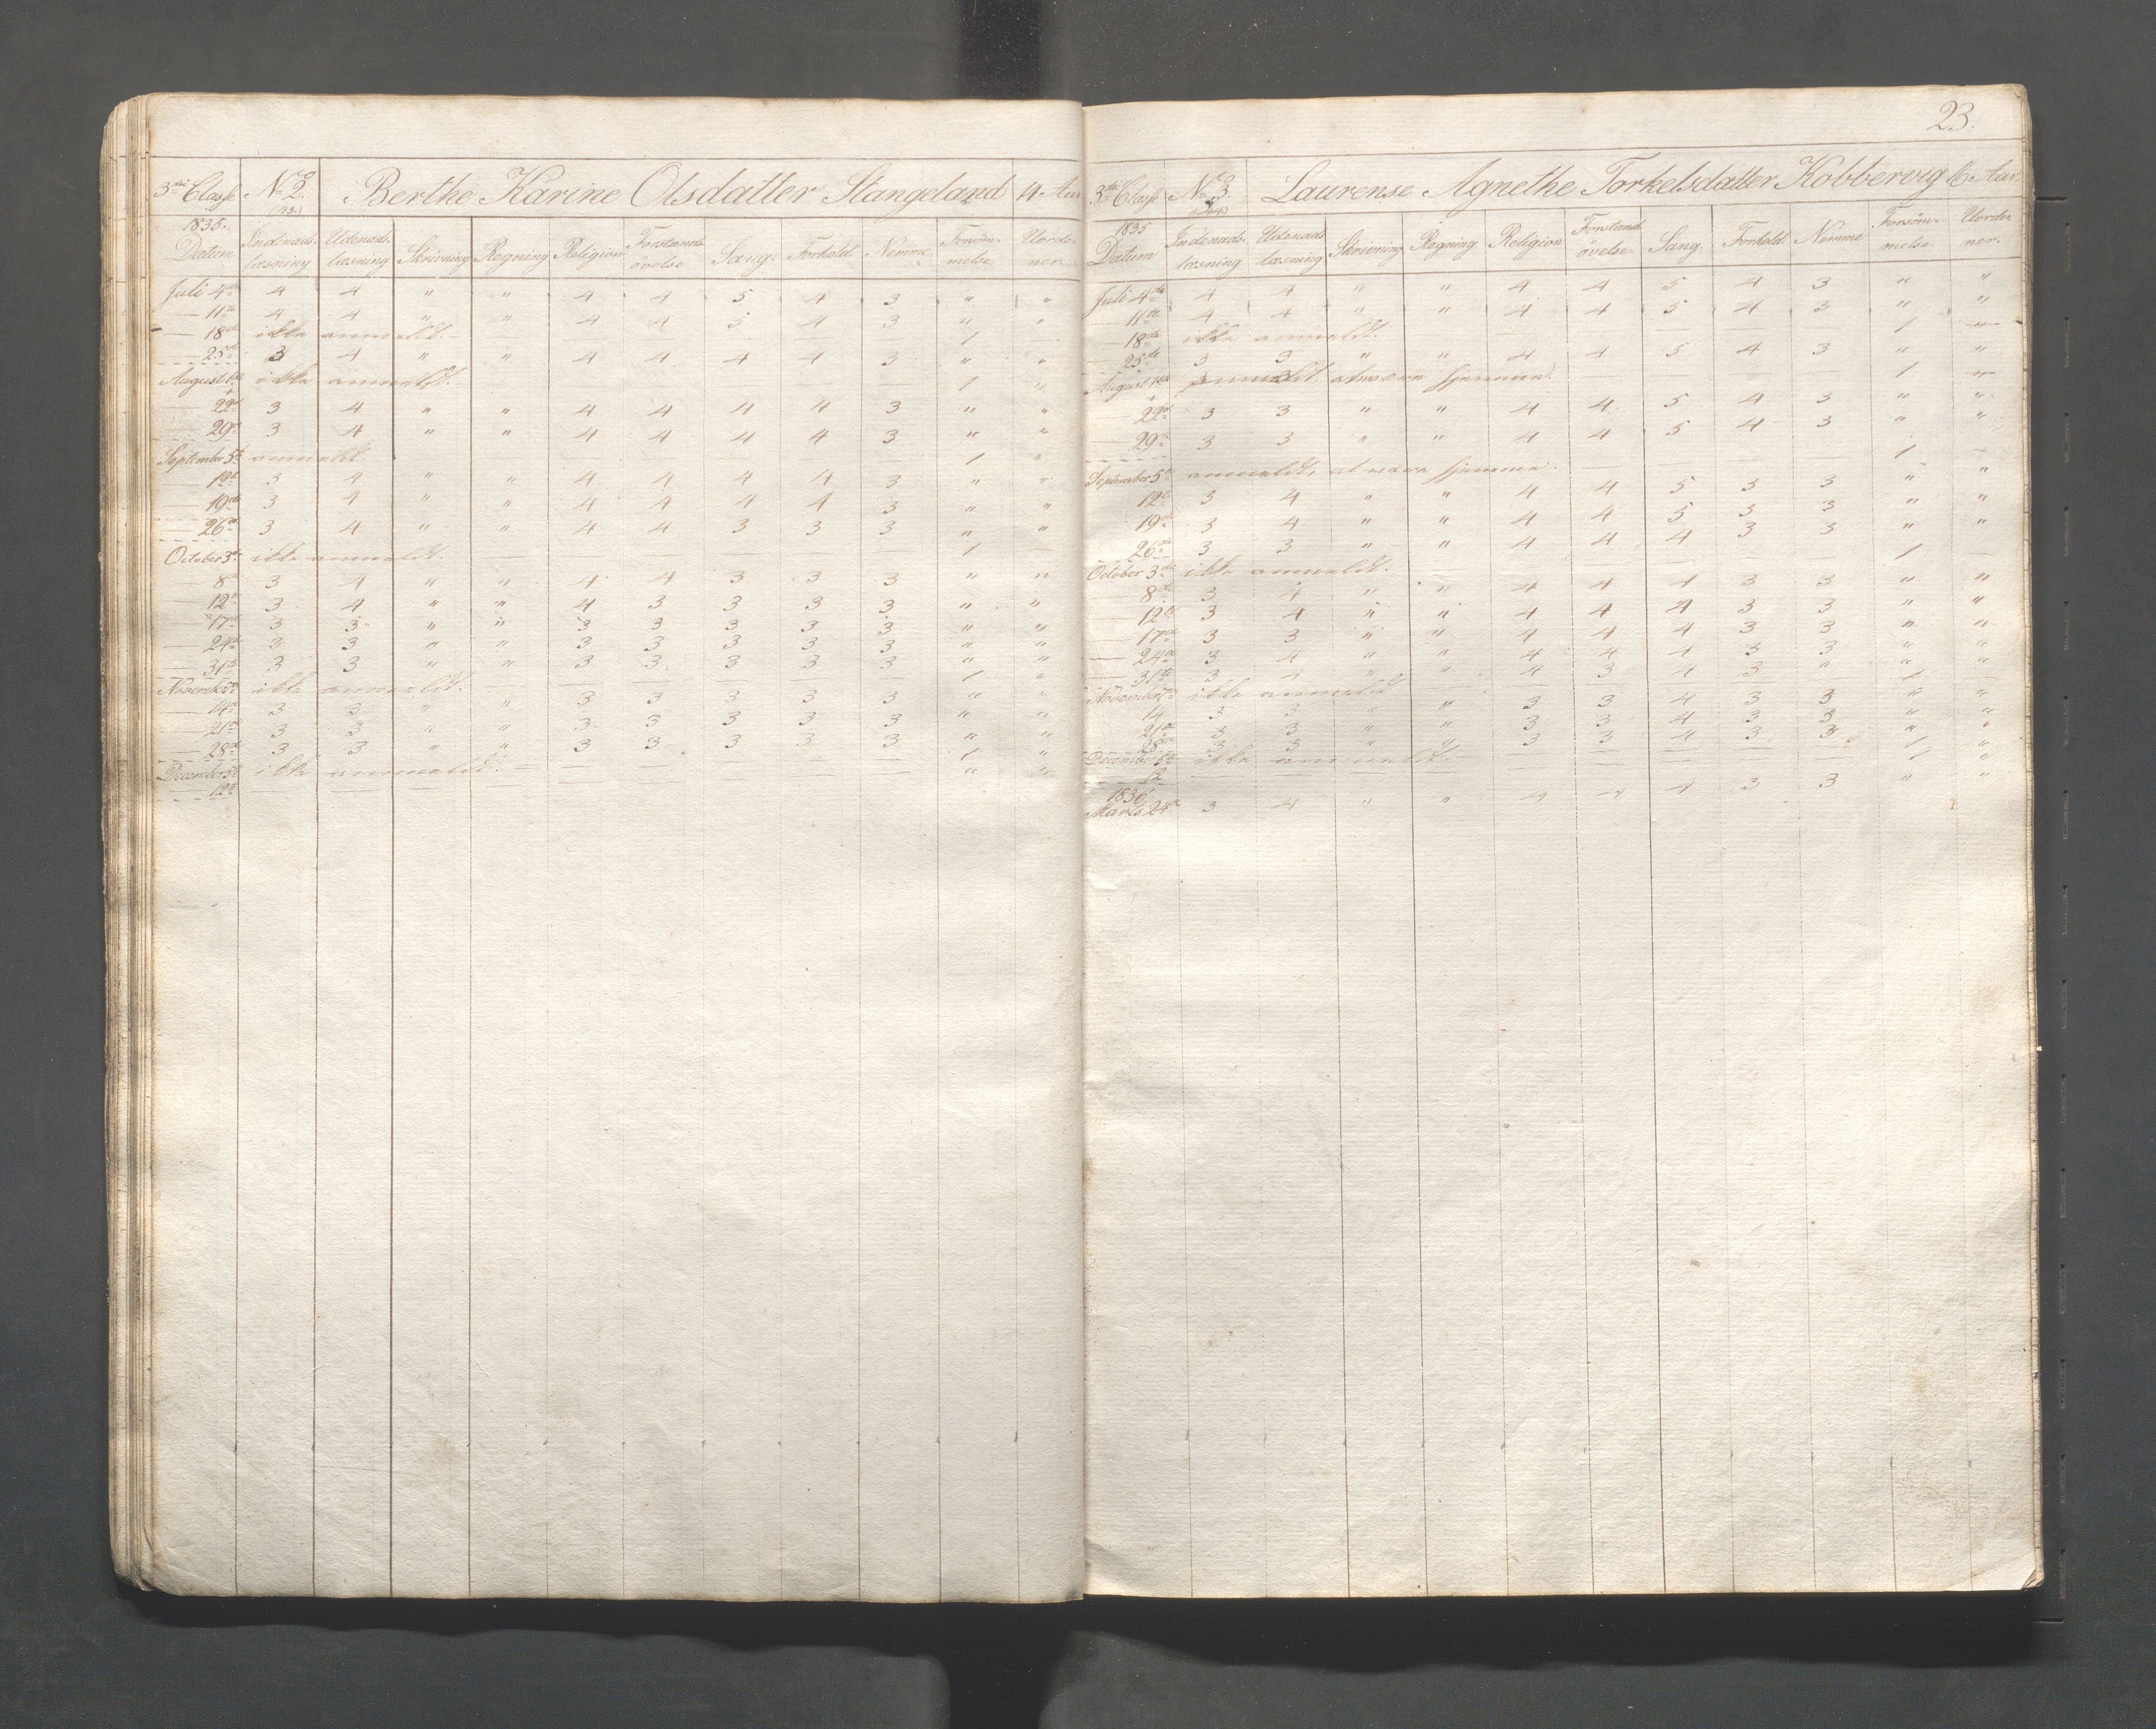 3die Classe No 2. Berthe Karine Olsdatter Stangeland 11 Aar
1835.
Datum Indenads- læsning Udenads- læsning Skrivning Regning Religion Forstands- øvelse Sang. Forhold Nemme Forsøm- melse Uorde- ner.
Juli 4de 4 4 " " 4 4 5 4 3 " "
— 11te 4 4 " " 4 4 5 4 3 " "
— 18de ikke anmeldt. — 1
— 25de 3 4 " " 4 4 4 4 3 " "
August 1ste ikke anmeldt. 1 "
— 22de 3 4 " " 4 4 4 4 3 " "
— 29de 3 4 " " 4 4 4 4 3 " "
September 5te anmeldt 1 "
— 12te 3 4 " " 4 4 4 4 3 " "
— 19de 3 4 " " 4 4 4 4 3 " "
— 26de 3 4 " " 4 4 3 3 3 " "
October 3de ikke anmeldt. — 1 —
— 8de 3 4 " " 4 4 3 3 3 " "
— 12te 3 4 " " 4 3 3 3 3 " "
— 17de 3 3 " " 3 3 3 3 3 " "
— 24de 3 3 " " 3 3 3 3 3 " "
— 31te 3 3 " " 3 3 3 3 3 " "
November 7de ikke anmeldt. — 1 "
— 14de 3 3 " " 3 3 3 3 3 " "
— 21de 3 3 " " 3 3 3 3 3 " "
— 28de 3 3 " " 3 3 3 3 3 " "
December 5te ikke anmeldt. — 1 "
— 12te — " "
23.
3die Classe No 3. Laurense Agnethe Torkelsdatter Kobbervig 16 Aar
1835
Datum Indenads- læsning Udenads læsning Skrivning Regning Religion Forstands øvelse Sang. Forhold Nemme Forsøm- melse Uorde- ner.
Juli 4de 4 4 " " 4 4 5 4 3 " "
— 11te 4 4 " " 4 4 5 4 3 " "
— 18de ikke anmeldt. — 1 "
— 25de 3 3 " " 4 4 5 4 3 " "
August 1ste anmeldt at være hjemme. — 1 "
— 22de 3 3 " " 4 4 5 4 3 " "
— 29de 3 3 " " 4 4 5 4 3 " "
September 5te anmeldt, at være hjemme. — 1 —
12te 3 4 " " 4 4 5 3 3 " "
19de 3 4 " " 4 4 5 3 3 " "
26de 3 3 " " 4 4 4 3 3 " "
October 3de ikke anmeldt. — 1 —
8de 3 4 " " 4 4 4 3 3 " "
12te 3 4 " " 4 4 4 3 3 " "
— 17de 3 3 " " 4 4 4 3 3 " "
— 24de 3 4 " " 4 4 4 3 3 " "
— 31te 3 4 " " 4 3 4 3 " " "
November 7de ikke anmeldt — 1 —
14 3 3 " " 3 3 4 3 3 " "
21de 3 3 " " 3 3 4 3 3 " "
28de 3 3 " " 3 3 4 3 3 " "
December 5te ikke anmeldt. — 1 "
12 — 1 "
1836.
Marts 24de 3 4 " " 4 4 4 3 3 " "